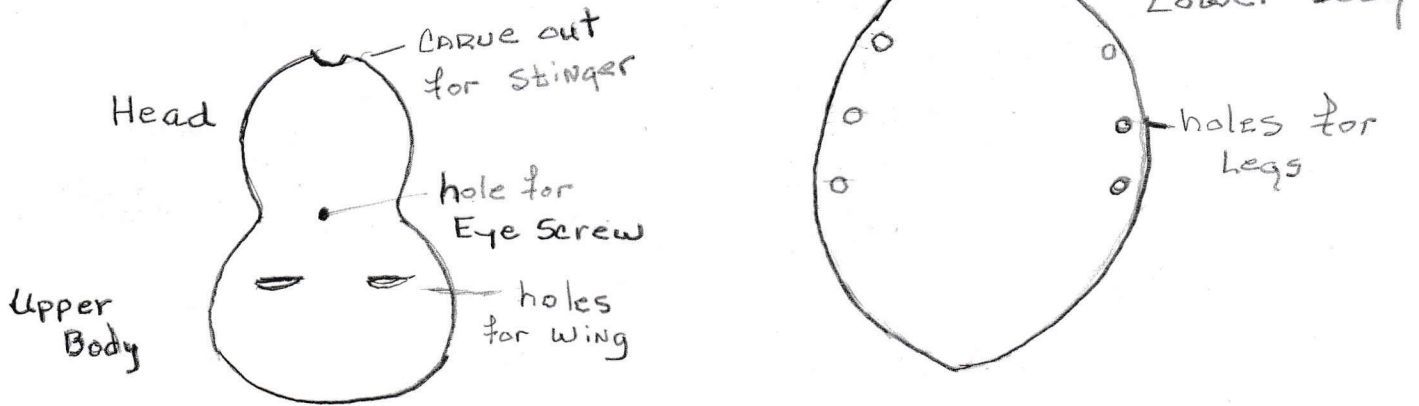 CARVE out
for Stinger
Head
hole for
Eye Screw
Upper
Body
holes
for Wing
Lower
holes for
Legs